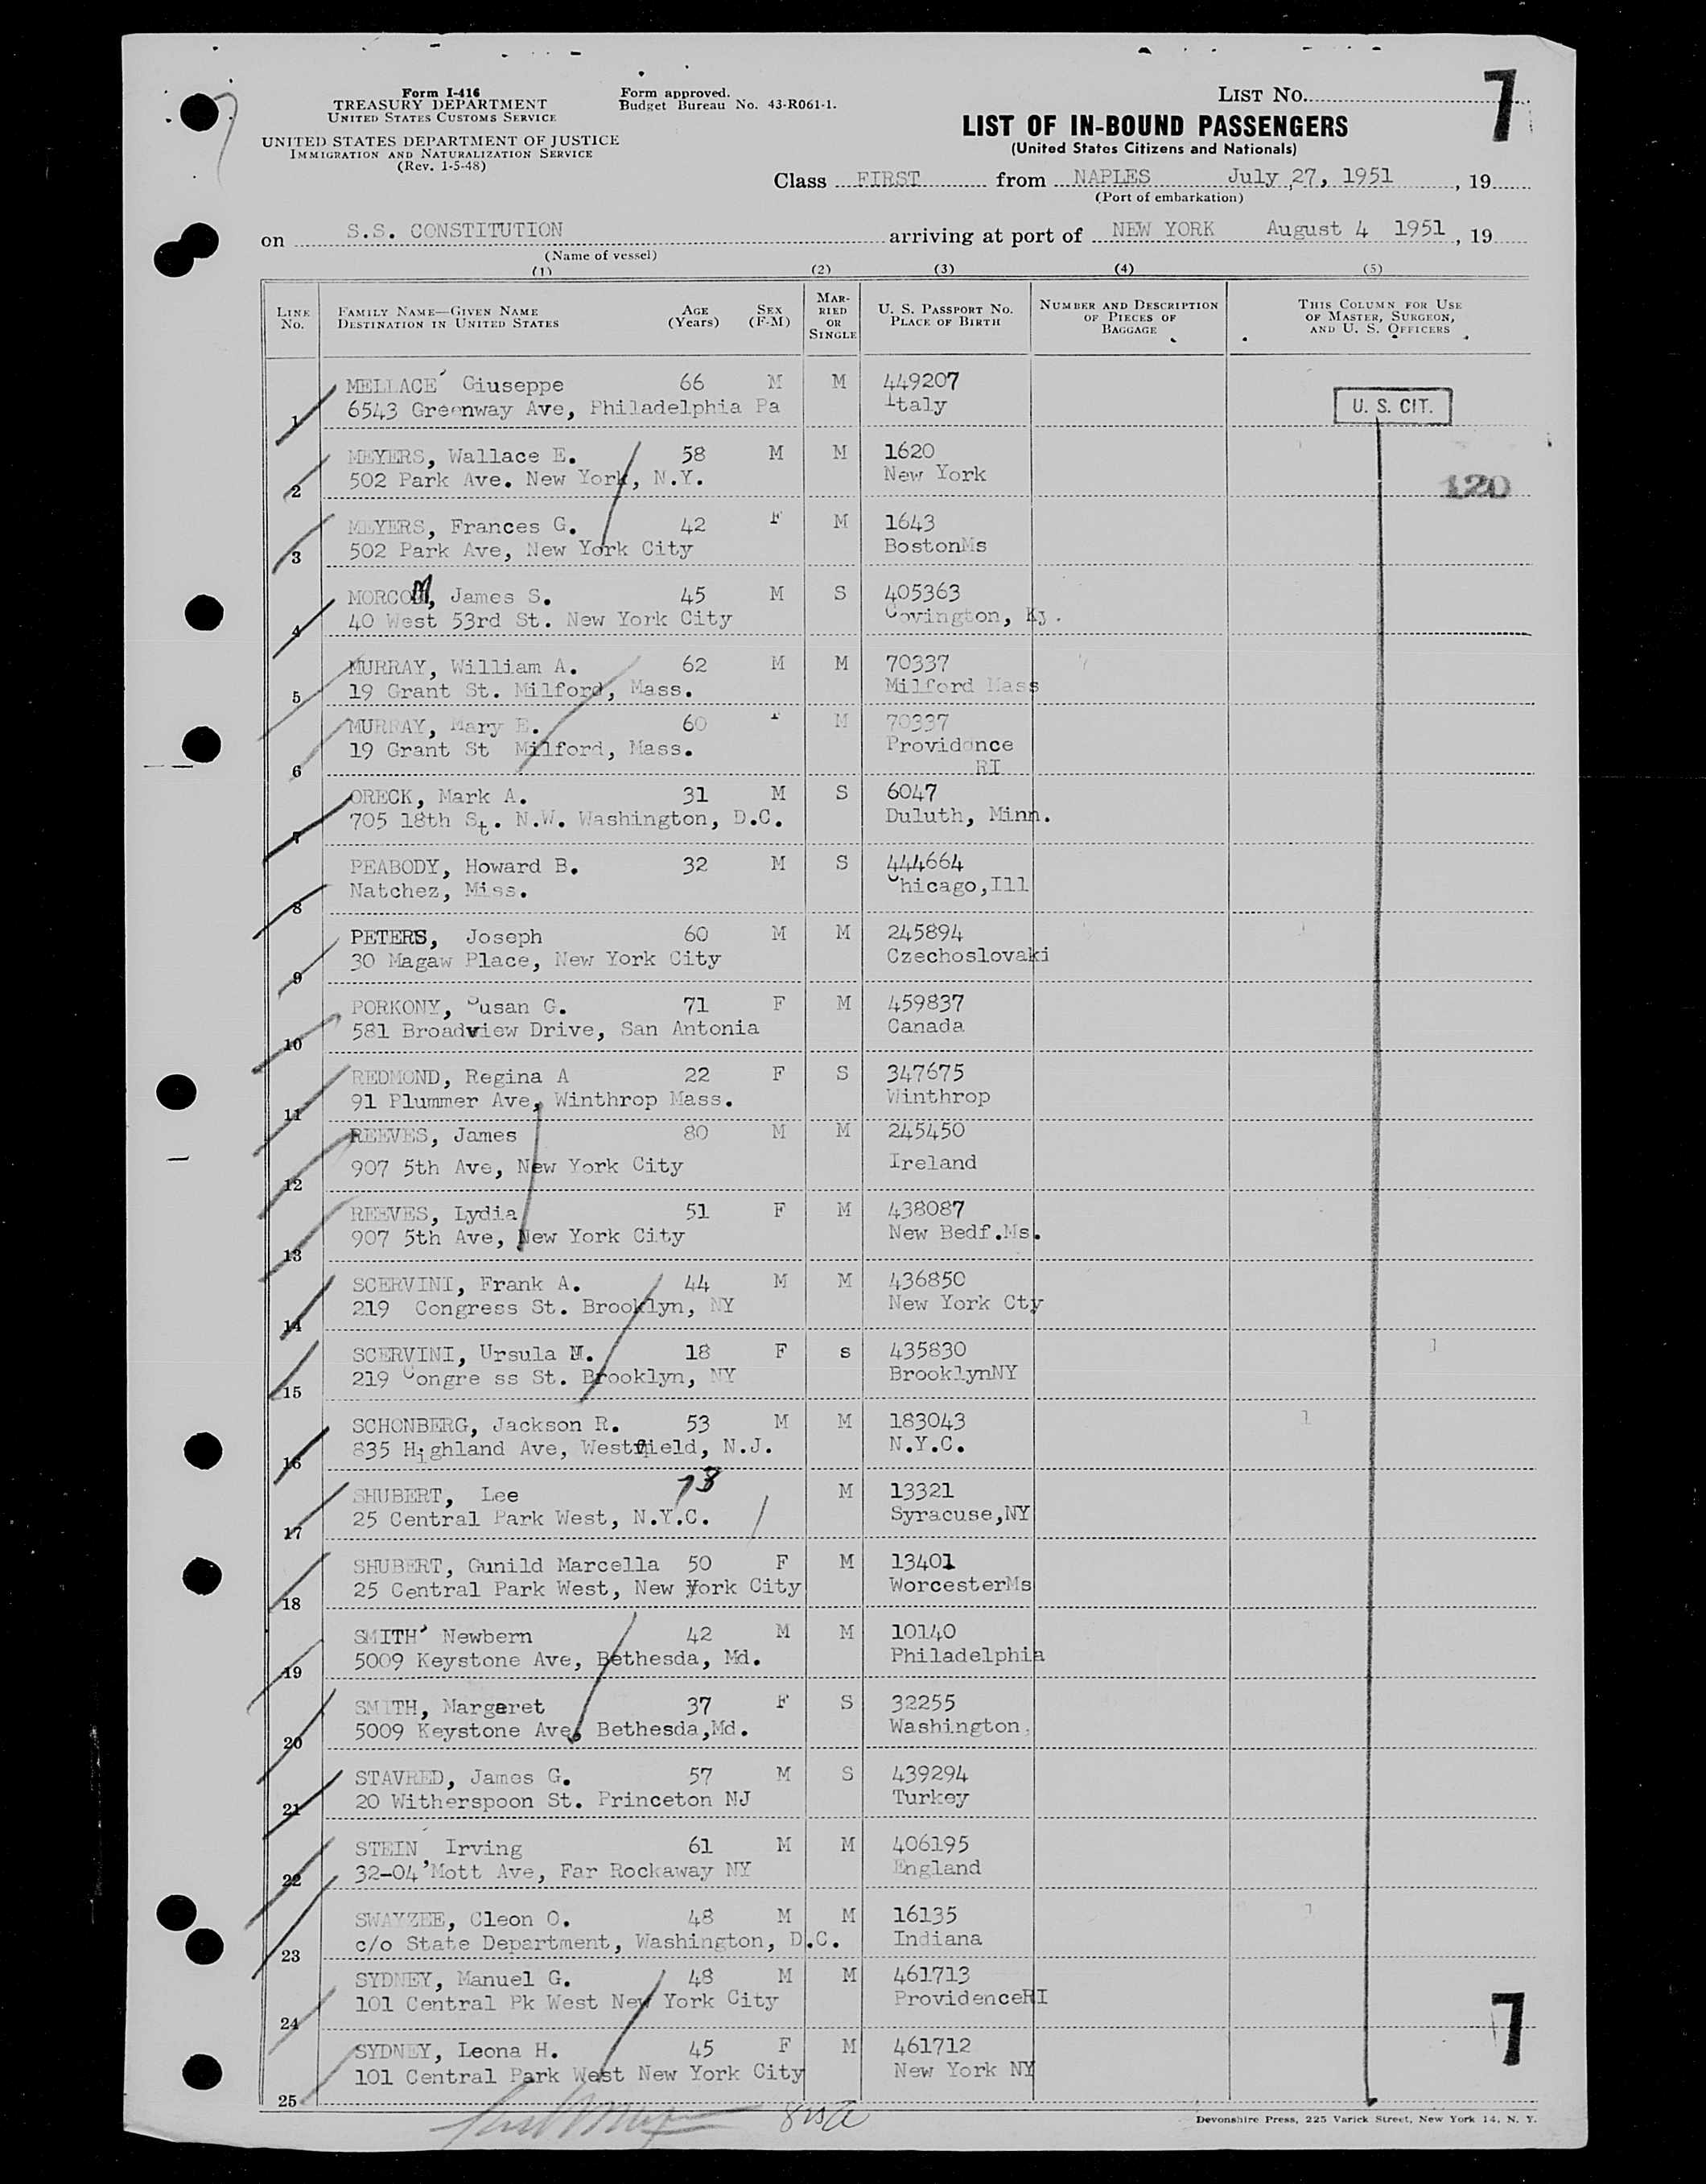 Form I-416
TREASURY DEPARTMENT
UNITED STATES CUSTOMS SERVICE
UNITED STATES DEPARTMENT OF JUSTICE
IMMIGRATION AND NATURALIZATION SERVICE
(Rev. 1-5-48)
Form approved.
Budget Bureau No. 43-R061-1.
LIST NO. 7
LIST OF IN-BOUND PASSENGERS
(United States Citizens and Nationals)
Class FIRST from NAPLES July 27, 1951, 19
(Port of embarkation)
on S.S. CONSTITUTION arriving at port of NEW YORK August 4 1951, 19
(Name of vessel)
(1) (2) (3) (4) (5)
LINE No. FAMILY NAME—GIVEN NAME DESTINATION IN UNITED STATES AGE (Years) SEX (F-M) MARRIED OR SINGLE U. S. PASSPORT NO. PLACE OF BIRTH NUMBER AND DESCRIPTION OF PIECES OF BAGGAGE THIS COLUMN FOR USE OF MASTER, SURGEON, AND U. S. OFFICERS
MELLACE Giuseppe 66 M M 449207
1 6543 Greenway Ave, Philadelphia Pa Italy U. S. CIT.
MEYERS, Wallace E. 58 M M 1620
2 502 Park Ave. New York, N.Y. New York 120
MEYERS, Frances G. 42 F M 1643
3 502 Park Ave, New York City BostonMs
MORCOM, James S. 45 M S 405363
4 40 West 53rd St. New York City Covington, Ky.
MURRAY, William A. 62 M M 70337
5 19 Grant St. Milford, Mass. Milford Mass
MURRAY, Mary E. 60 F M 70337
6 19 Grant St Milford, Mass. Providence RI
ORECK, Mark A. 31 M S 6047
7 705 18th St. N.W. Washington, D.C. Duluth, Minn.
PEABODY, Howard B. 32 M S 444664
8 Natchez, Miss. Chicago,Ill
PETERS, Joseph 60 M M 245894
9 30 Magaw Place, New York City Czechoslovaki
PORKONY, Susan G. 71 F M 459837
10 581 Broadview Drive, San Antonia Canada
REDMOND, Regina A 22 F S 347675
11 91 Plummer Ave, Winthrop Mass. Winthrop
REEVES, James 80 M M 245450
12 907 5th Ave, New York City Ireland
REEVES, Lydia 51 F M 438087
13 907 5th Ave, New York City New Bedf.Ms.
SCERVINI, Frank A. 44 M M 436850
14 219 Congress St. Brooklyn, NY New York Cty
SCERVINI, Ursula M. 18 F s 435830
15 219 Congre ss St. Brooklyn, NY BrooklynNY
SCHONBERG, Jackson R. 53 M M 183043
16 835 Highland Ave, Westfield, N.J. N.Y.C.
SHUBERT, Lee 73 M 13321
17 25 Central Park West, N.Y.C. Syracuse,NY
SHUBERT, Gunild Marcella 50 F M 13401
18 25 Central Park West, New York City WorcesterMs
SMITH' Newbern 42 M M 10140
19 5009 Keystone Ave, Bethesda, Md. Philadelphia
SMITH, Margaret 37 F S 32255
20 5009 Keystone Ave, Bethesda,Md. Washington.
STAVRED, James G. 57 M S 439294
21 20 Witherspoon St. Princeton NJ Turkey
STEIN Irving 61 M M 406195
22 32-04'Mott Ave, Far Rockaway NY England
SWAYZEE, Cleon O. 48 M M 16135
23 c/o State Department, Washington, D.C. Indiana
SYDNEY, Manuel G. 48 M M 461713
24 101 Central Pk West New York City ProvidenceRI
SYDNEY, Leona H. 45 F M 461712
25 101 Central Park West New York City New York NY
7
Devonshire Press, 225 Varick Street, New York 14, N. Y.